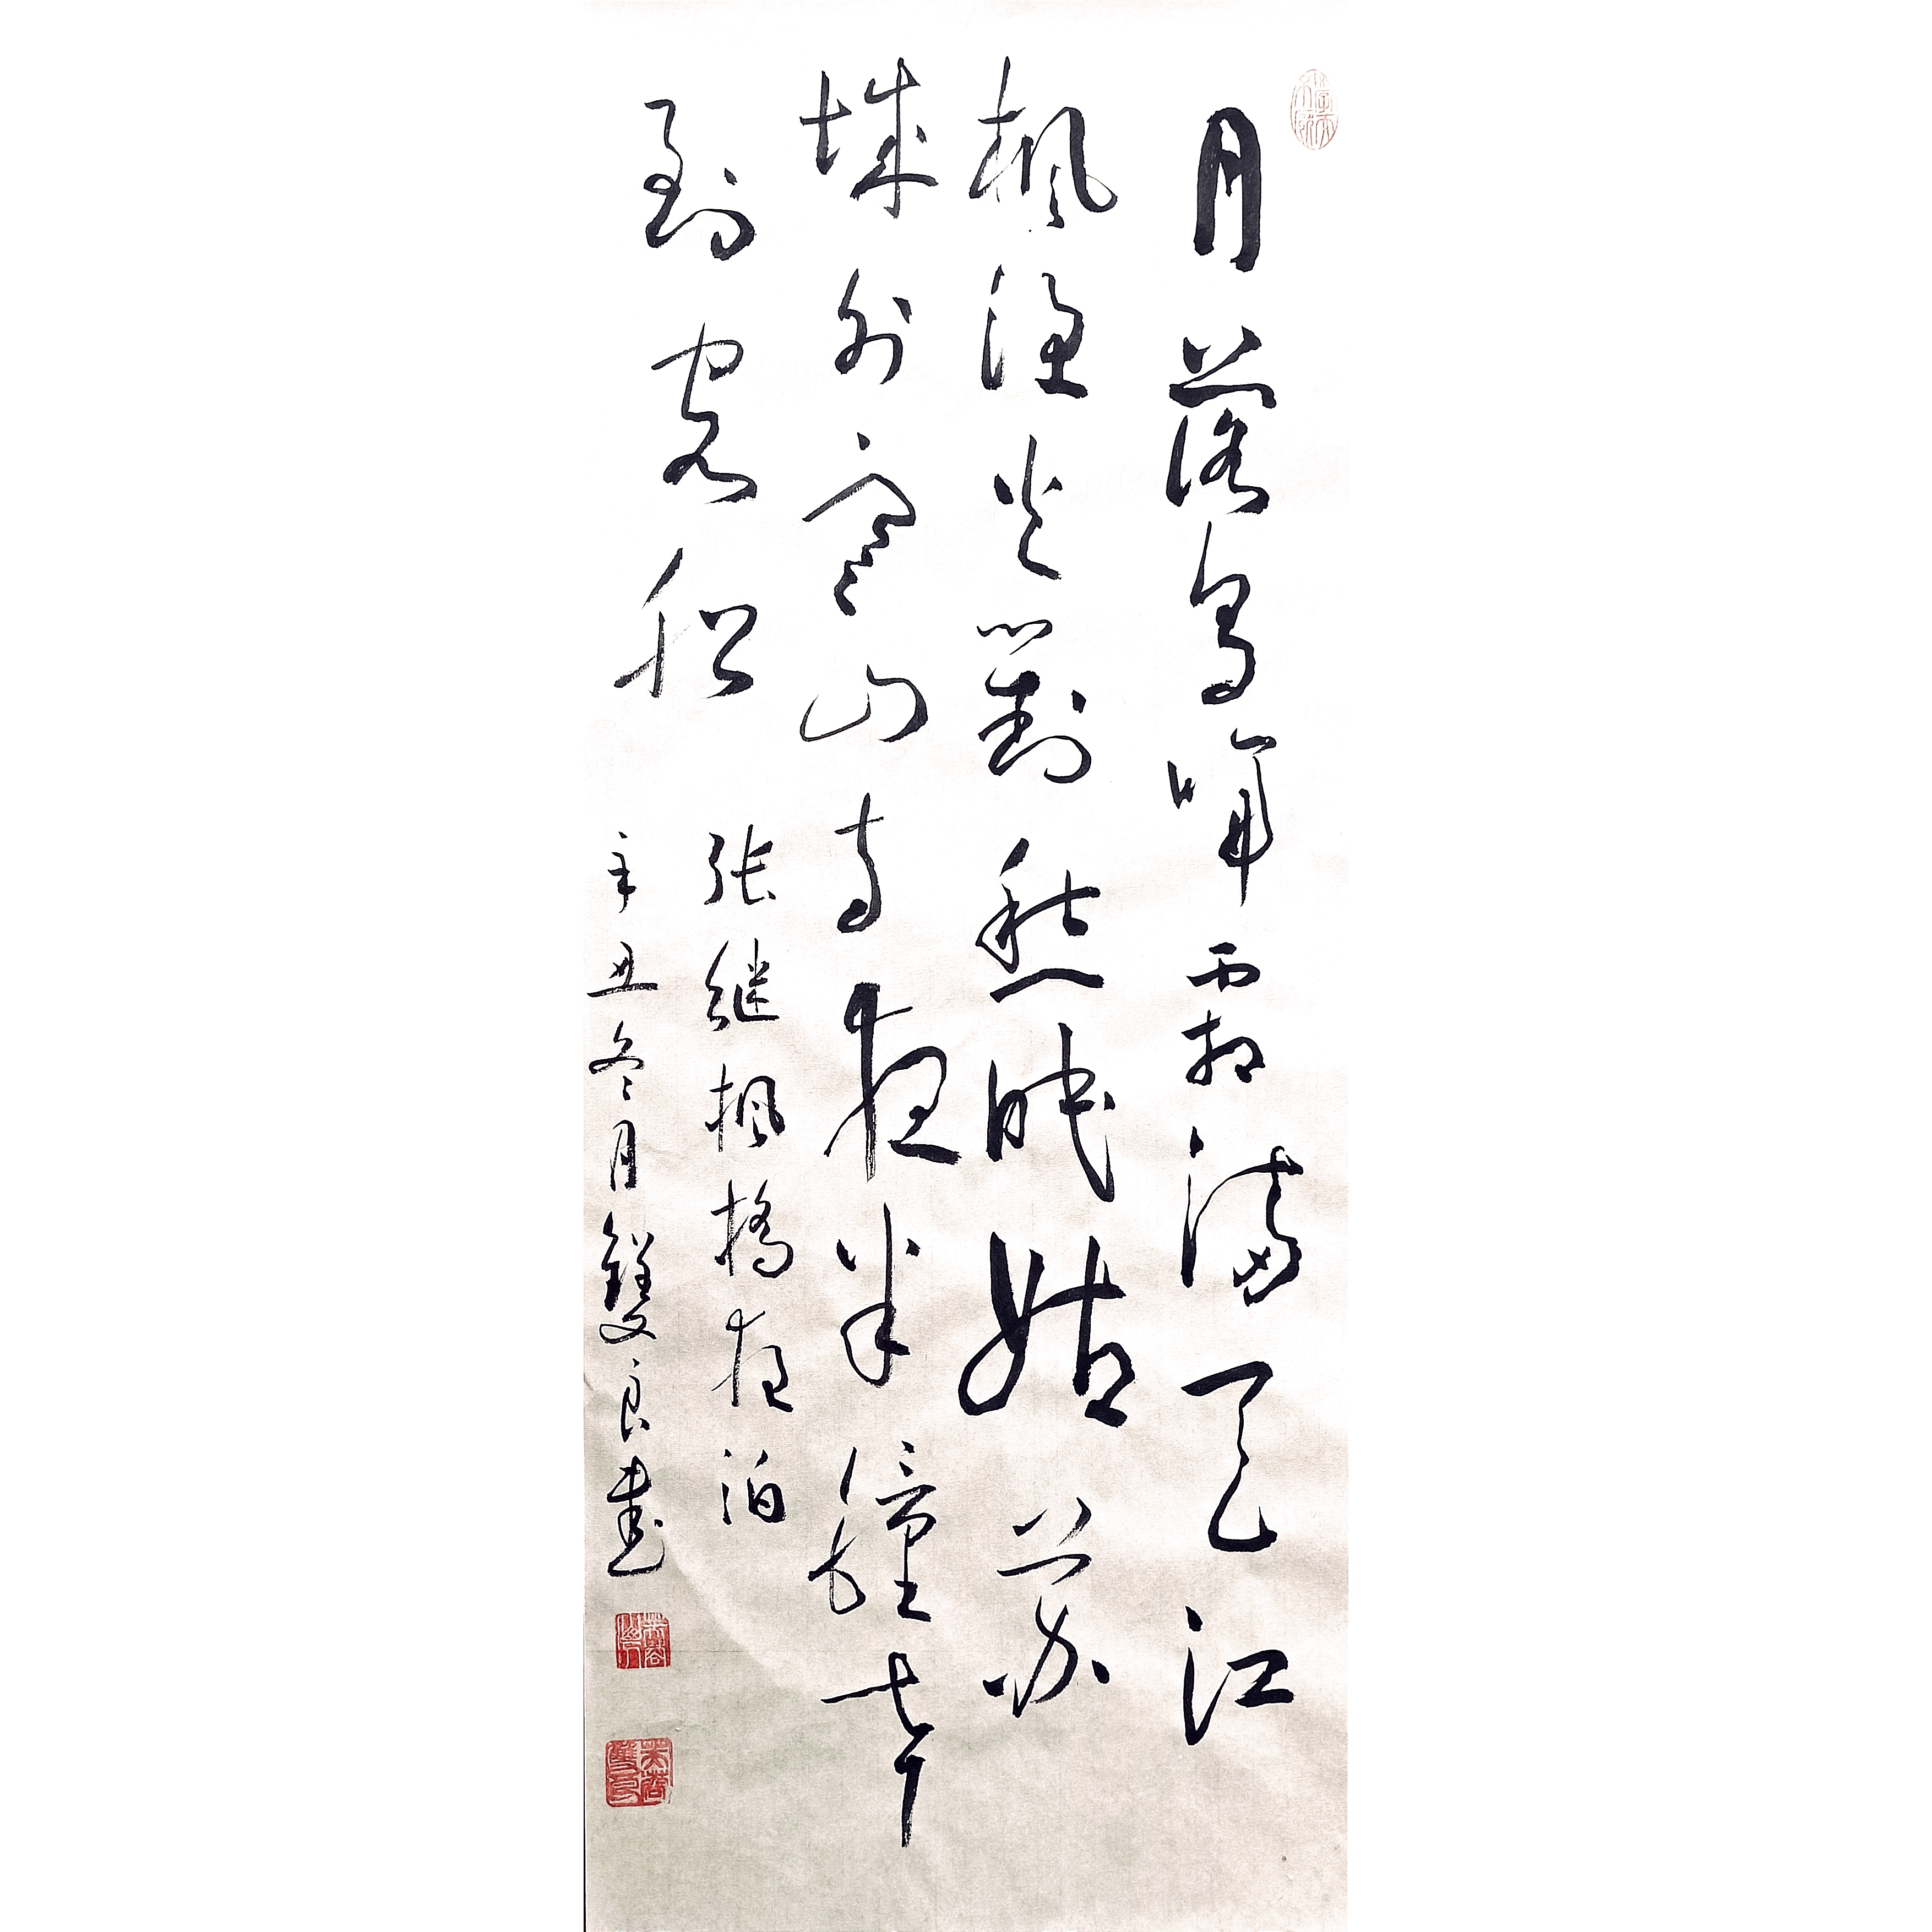 月落烏啼霜满天江
枫渔火對愁眠姑苏
城外寒山寺夜半鐘声
到客船
张继枫橋夜泊
辛丑冬月雙良書